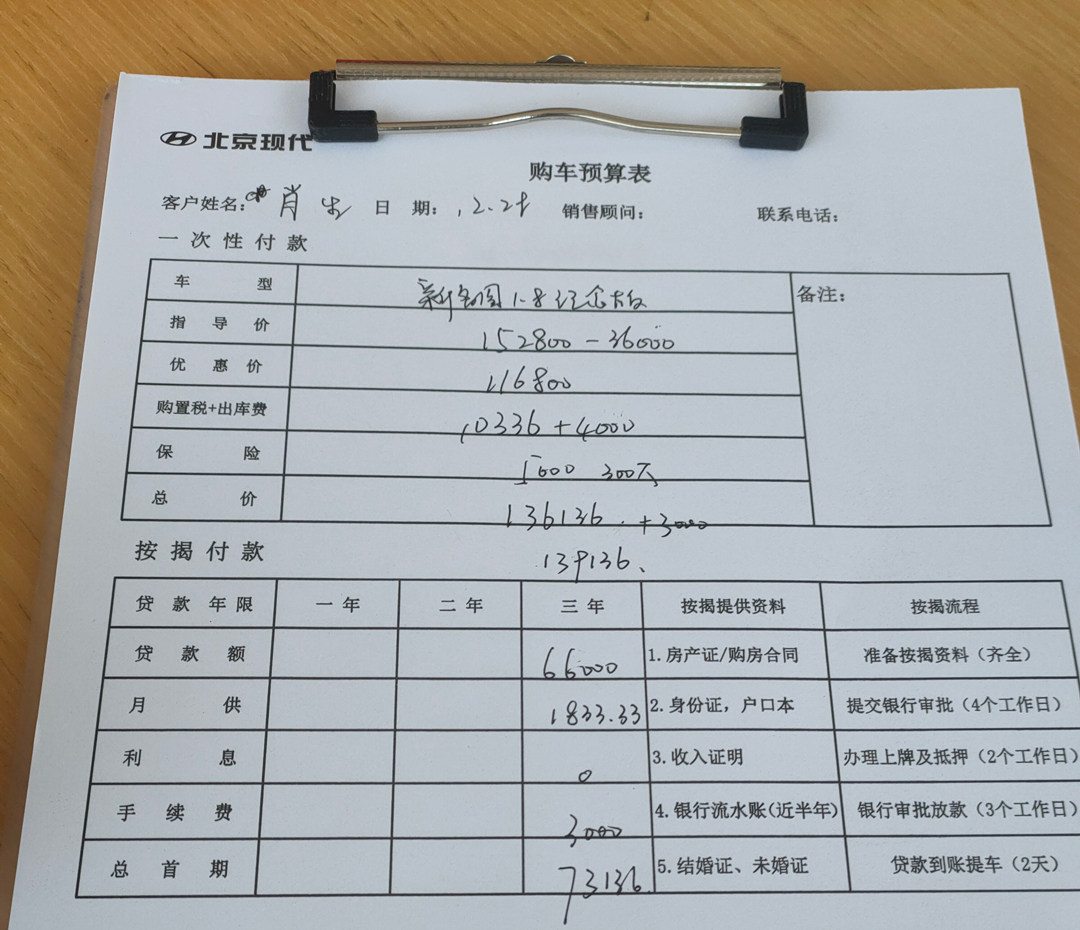 北京现代
购车预算表
客户姓名: 肖生 日 期: 12.28 销售顾问: 联系电话:
一次性付款
车 型 1.8纪念版 备注:
指 导 价 152800-36000
优 惠 价 116800
购置税+出库费 10336+4000
保 险 5000 300万
总 价 136136.+3000
139136.
按揭付款
贷款年限 一年 二年 三年 按揭提供资料 按揭流程
贷款额 66000 1.房产证/购房合同 准备按揭资料(齐全)
月 供 1833.33 2.身份证,户口本 提交银行审批(4个工作日)
利 息 0 3.收入证明 办理上牌及抵押(2个工作日)
手续费 3000 4.银行流水账(近半年) 银行审批放款(3个工作日)
总首期 73136. 5.结婚证、未婚证 贷款到账提车(2天)